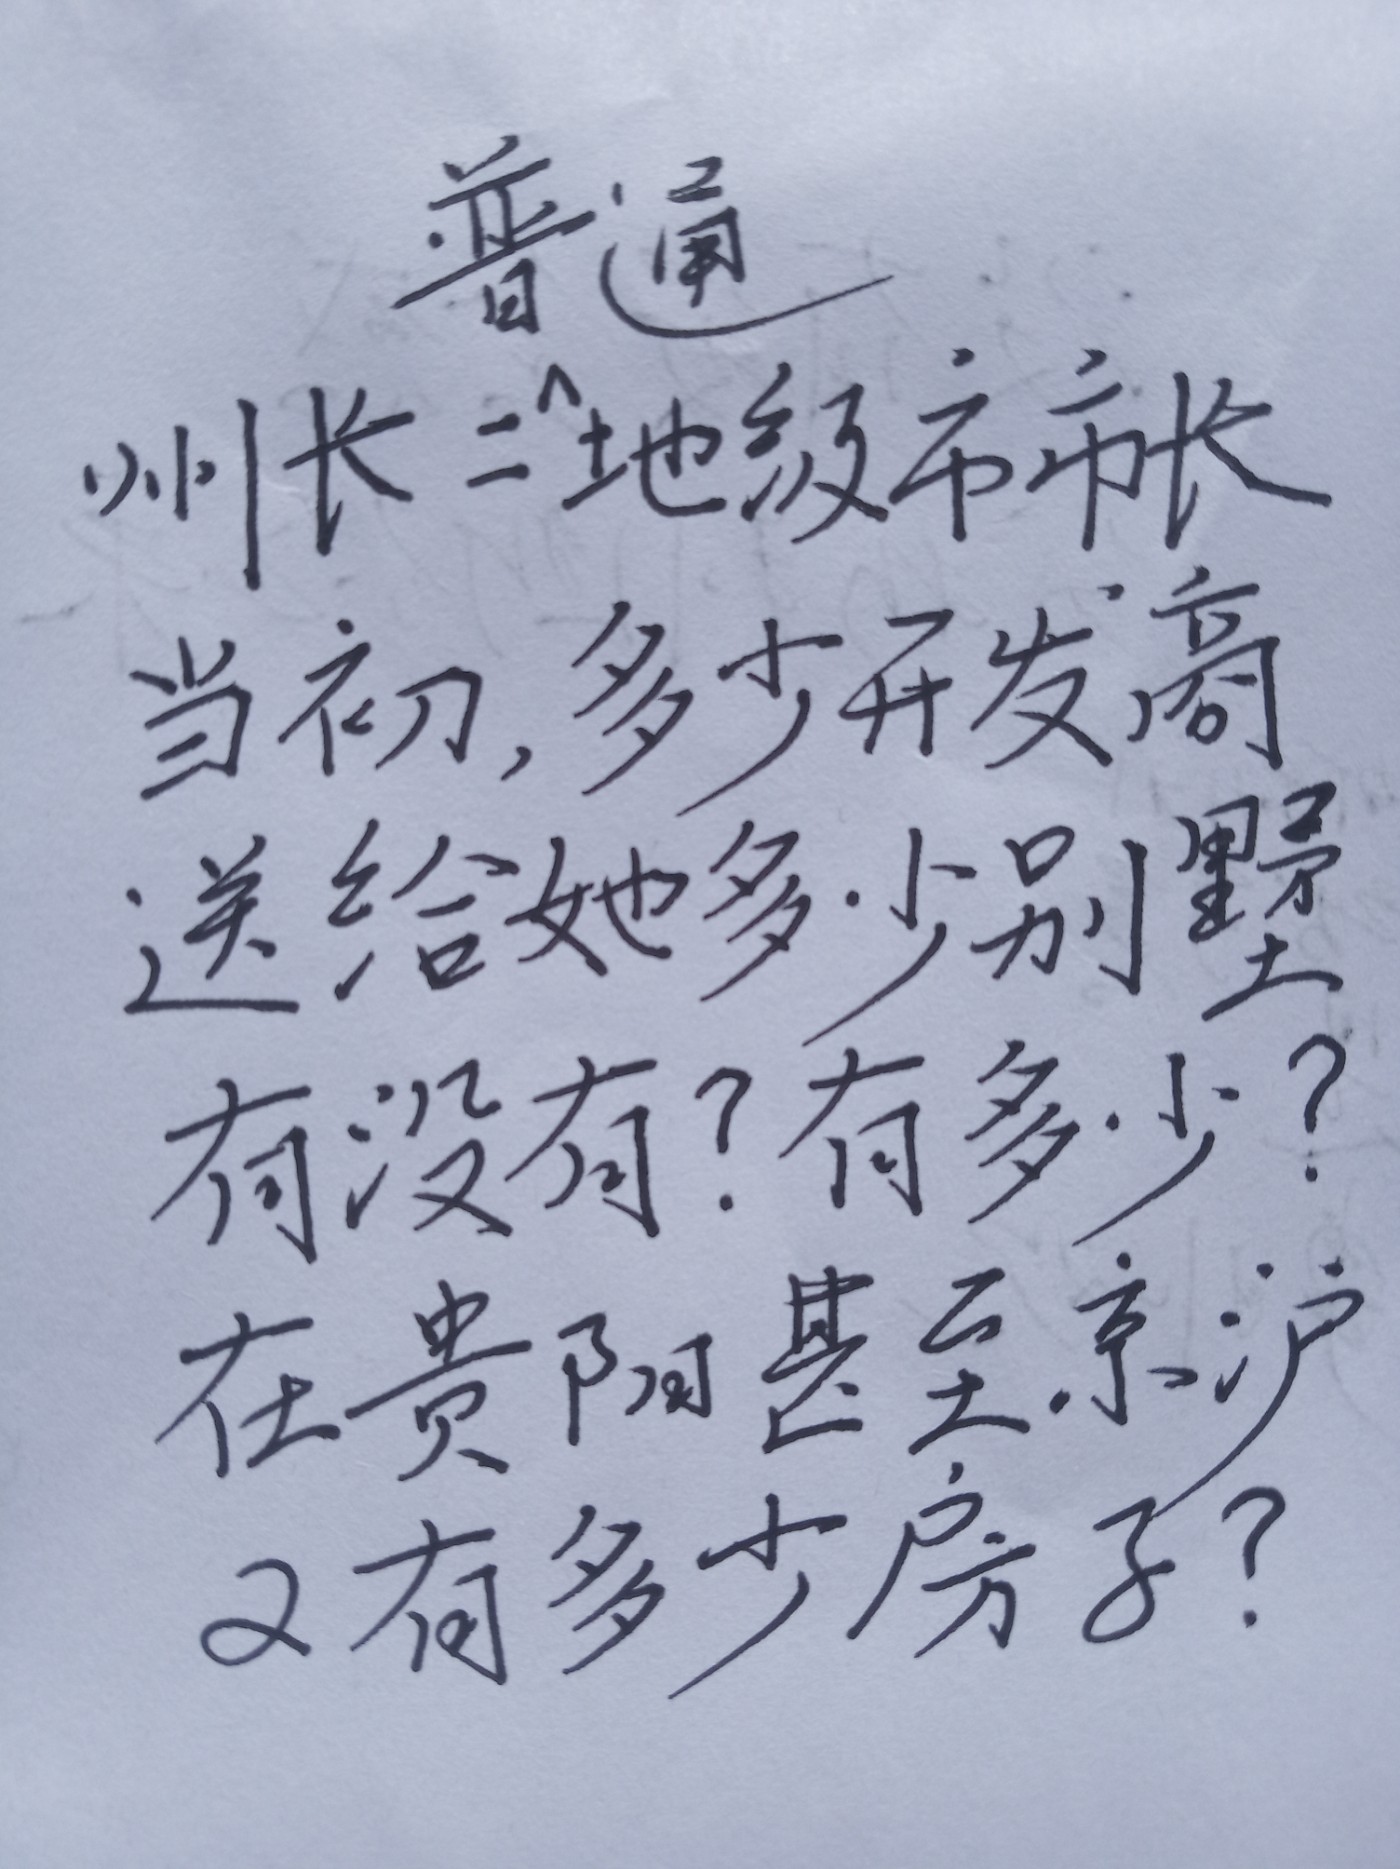 普通
州长=^地级市市长
当初,多少开发商
送给她多少别墅
有没有?有多少?
在贵阳甚至京沪
又有多少房子?